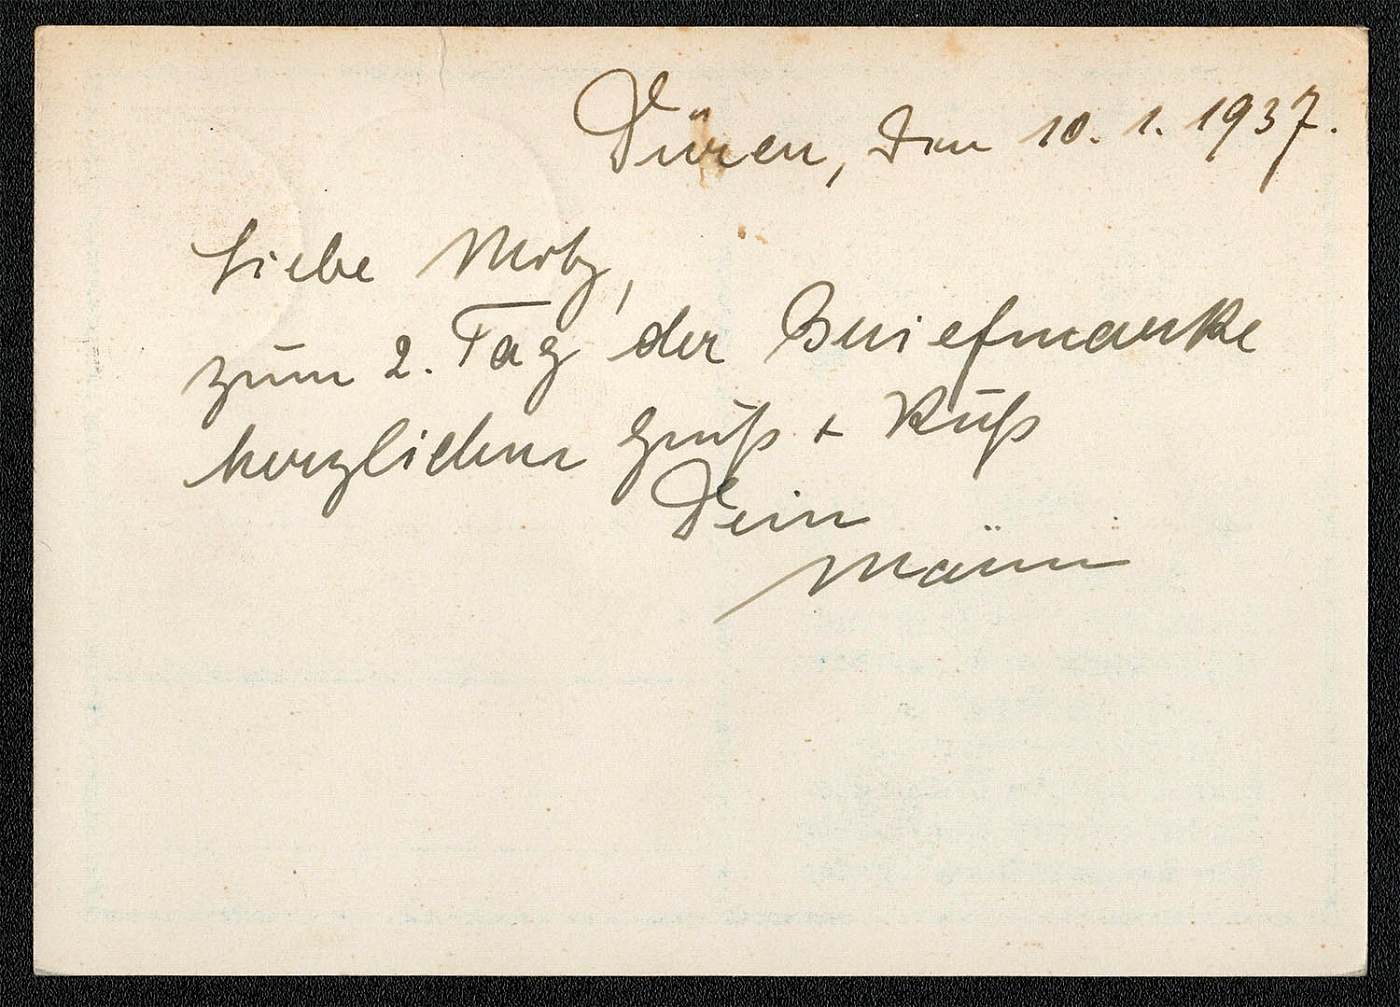 Düren, den 10. 1. 1937.
Liebe Motz,
zum 2. Tag der Briefmarke
herzlichen Gruß + Kuß
Dein
Männi